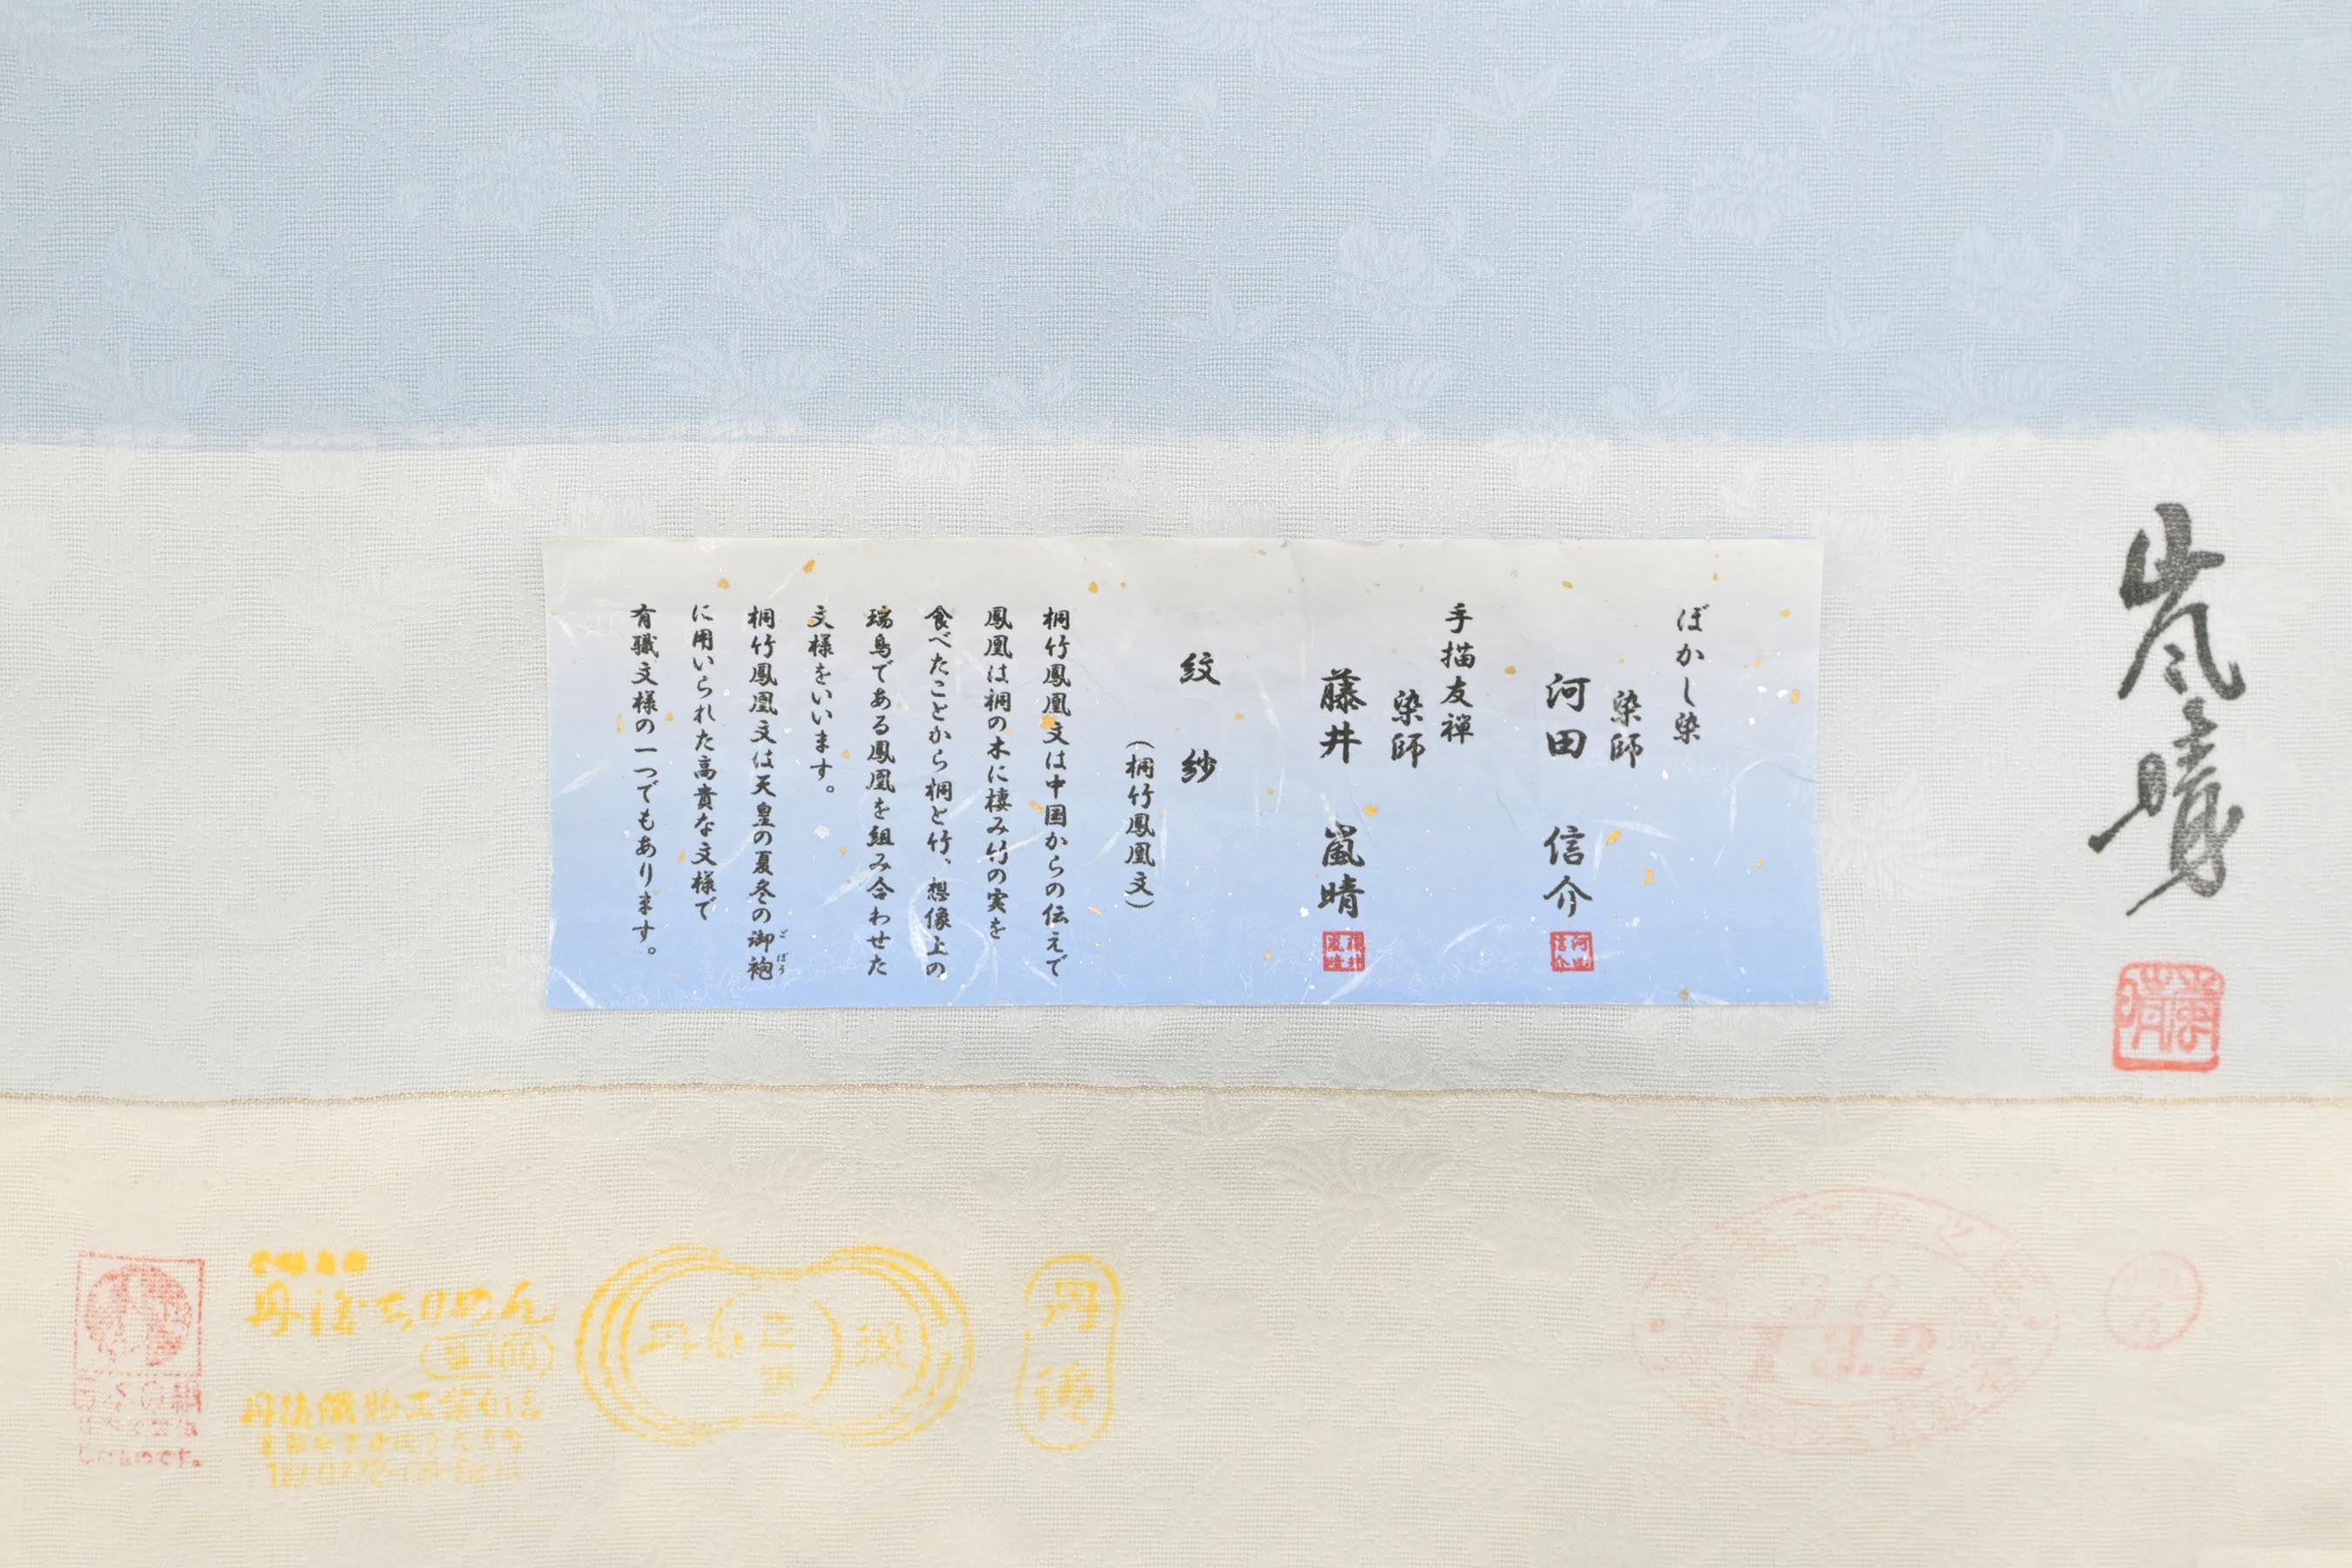 ぼかし染
染師
河田 信介
手描友禅
染師
藤井 嵐晴
紋紗
(桐竹鳳凰文)
桐竹鳳凰文は中国からの伝えで
鳳凰は桐の木に棲み竹の実を
食べたことから桐と竹、想像上の
瑞鳥である鳳凰を組み合わせた
文様をいいます。
桐竹鳳凰文は天皇の夏冬の御袍
ごほう
に用いられた高貴な文様で
有職文様の一つでもあります。
嵐晴
丹後ちりめん
丹後織物工業組合
丹後
日本の絹